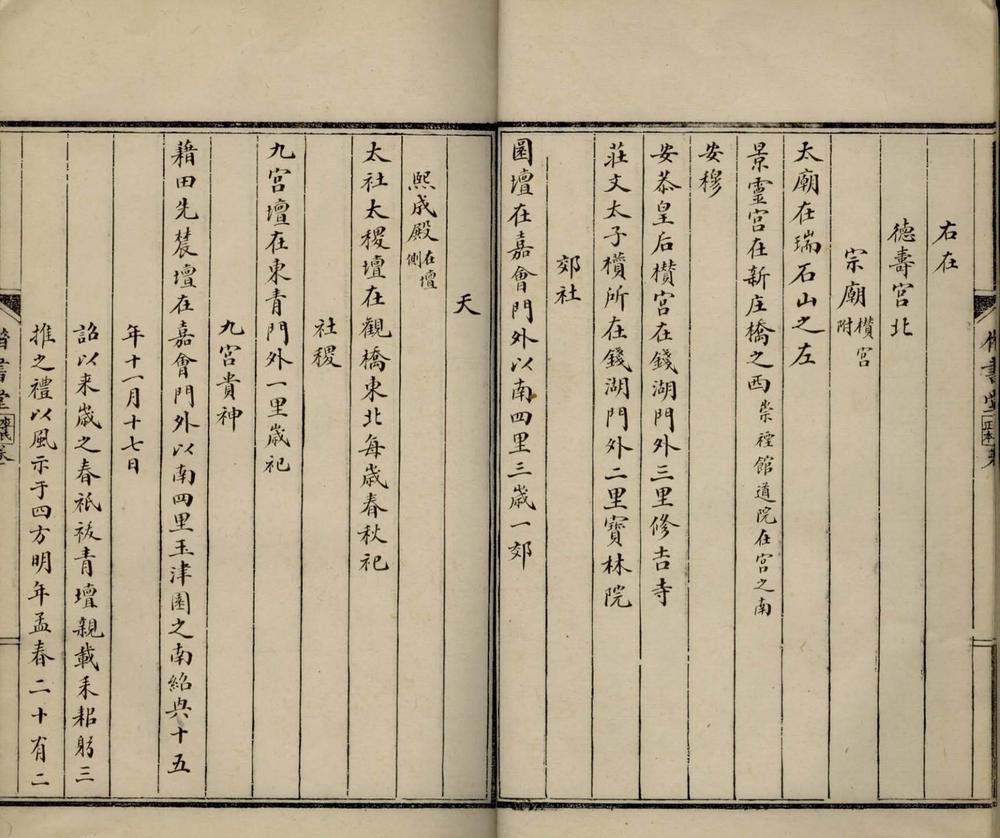 右在
德壽宮北
宗廟 欑宮附
太廟在瑞石山之左
景靈宮在新庄橋之西 崇禋館道院在宮之南
安穆
安恭皇后欑宮在錢湖門外三里修吉寺
莊文太子欑所在錢湖門外二里寶林院
郊社
圓壇在嘉會門外以南四里三歲一郊
天
熙成殿 在壇側
太社太稷壇在觀橋東北每歲春秋祀
社稷
九宮壇在東青門外一里歲祀
九宮貴神
藉田先農壇在嘉會門外以南四里玉津園之南紹興十五
年十一月十七日
詔以来歲之春祇祓青壇親載耒耜躬三
推之禮以風示于四方明年孟春二十有二